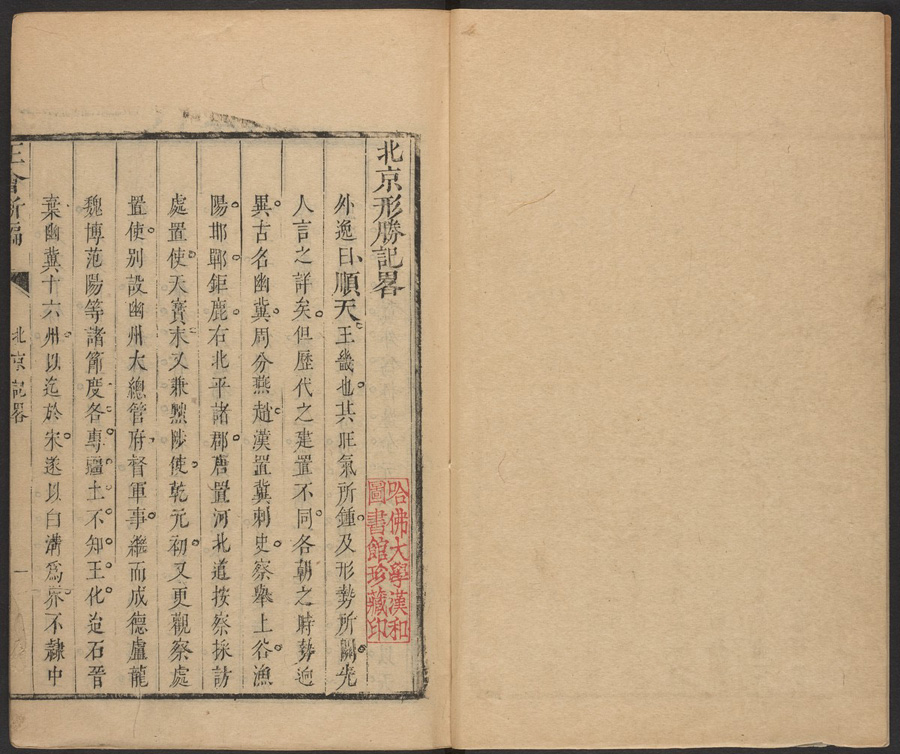 北京形勝記畧
外逸曰順天王畿也其旺氣所鍾及形勢所關先
人言之詳矣但歷代之建置不同各朝之時勢逈
異古名幽冀周分燕趙漢置冀刺史察舉上谷漁
陽邯鄲鉅鹿右北平諸郡唐置河北道按察採訪
處置使天寳末又兼黜陟使乾元初又更觀察處
置使別設幽州大總管府督軍事繼而成德盧龍
魏博范陽等諸節度各專疆土不知王化迨石晉
棄幽冀十六州以迄於宋遂以白溝爲界不隸中
北京記畧
一
哈佛大學漢和
圖書館珍藏印